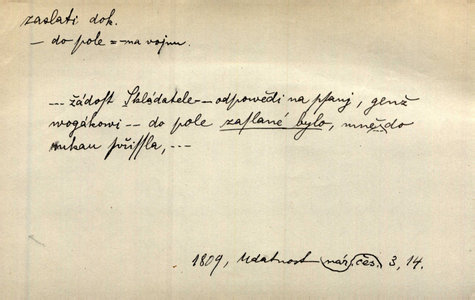 zaslati dok.
— do pole = na vojnu.
--- žádost Skladatele — odpowědi na psanj, genž
wogákowi -- do pole zaslané bylo, mně do
rukau přissla, ---
1809, Udatnost nár. čes. 3, 14.